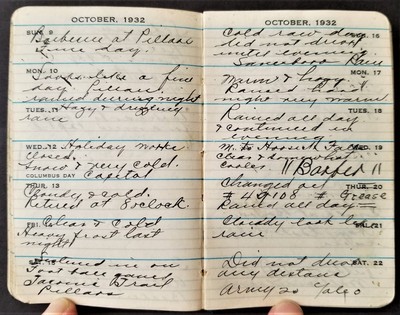 OCTOBER, 1932
SUN. 9
Barbecue at Pillars
Fine day.
MON. 10
Looks like a fine
day
rained during night
TUES. 11 Hazy & drizzly
rain
WED. 12 Holiday
Closed
Snow & very cold.
COLUMBUS DAY Capitol
THUR. 13
Cloudy & cold.
Retired at 8 o'clock.
FRI. 14 Clear & Cold
Heavy frost last
night
SAT. 15
Foot ball games
Trail
Pillars
OCTOBER, 1932
Cold raw day SUN. 16
did not drive
until evening
Rain
MON. 17
Warm & foggy
Rained hard
night very warm
TUES. 18
Rained all day
& continued in
evening
WED. 19
M. to Hoosick Falls
Clear &
cooler "Barfed"
Changed oil THUR. 20
# 49108 # Grease
Rained all day
FRI. 21
Cloudy look like
rain
SAT. 22
Did not drive
any distance
Army 20 Yale 0